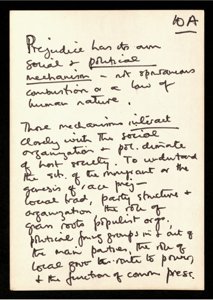 10A
Prejudice has its own
social & political
mechanism – not spontaneous
combustion or a law of
human nature.
These mechanisms interact
closely with the social
organization & pol. climate
of host society. To understand
the sit. of the immigrant or the
genesis of race prej –
local trad, party structure &
organization, the role of
grass roots populist org.
political fring groups in & out of
the main parties, the role of
local govt the route to power,
& the function of comm press.